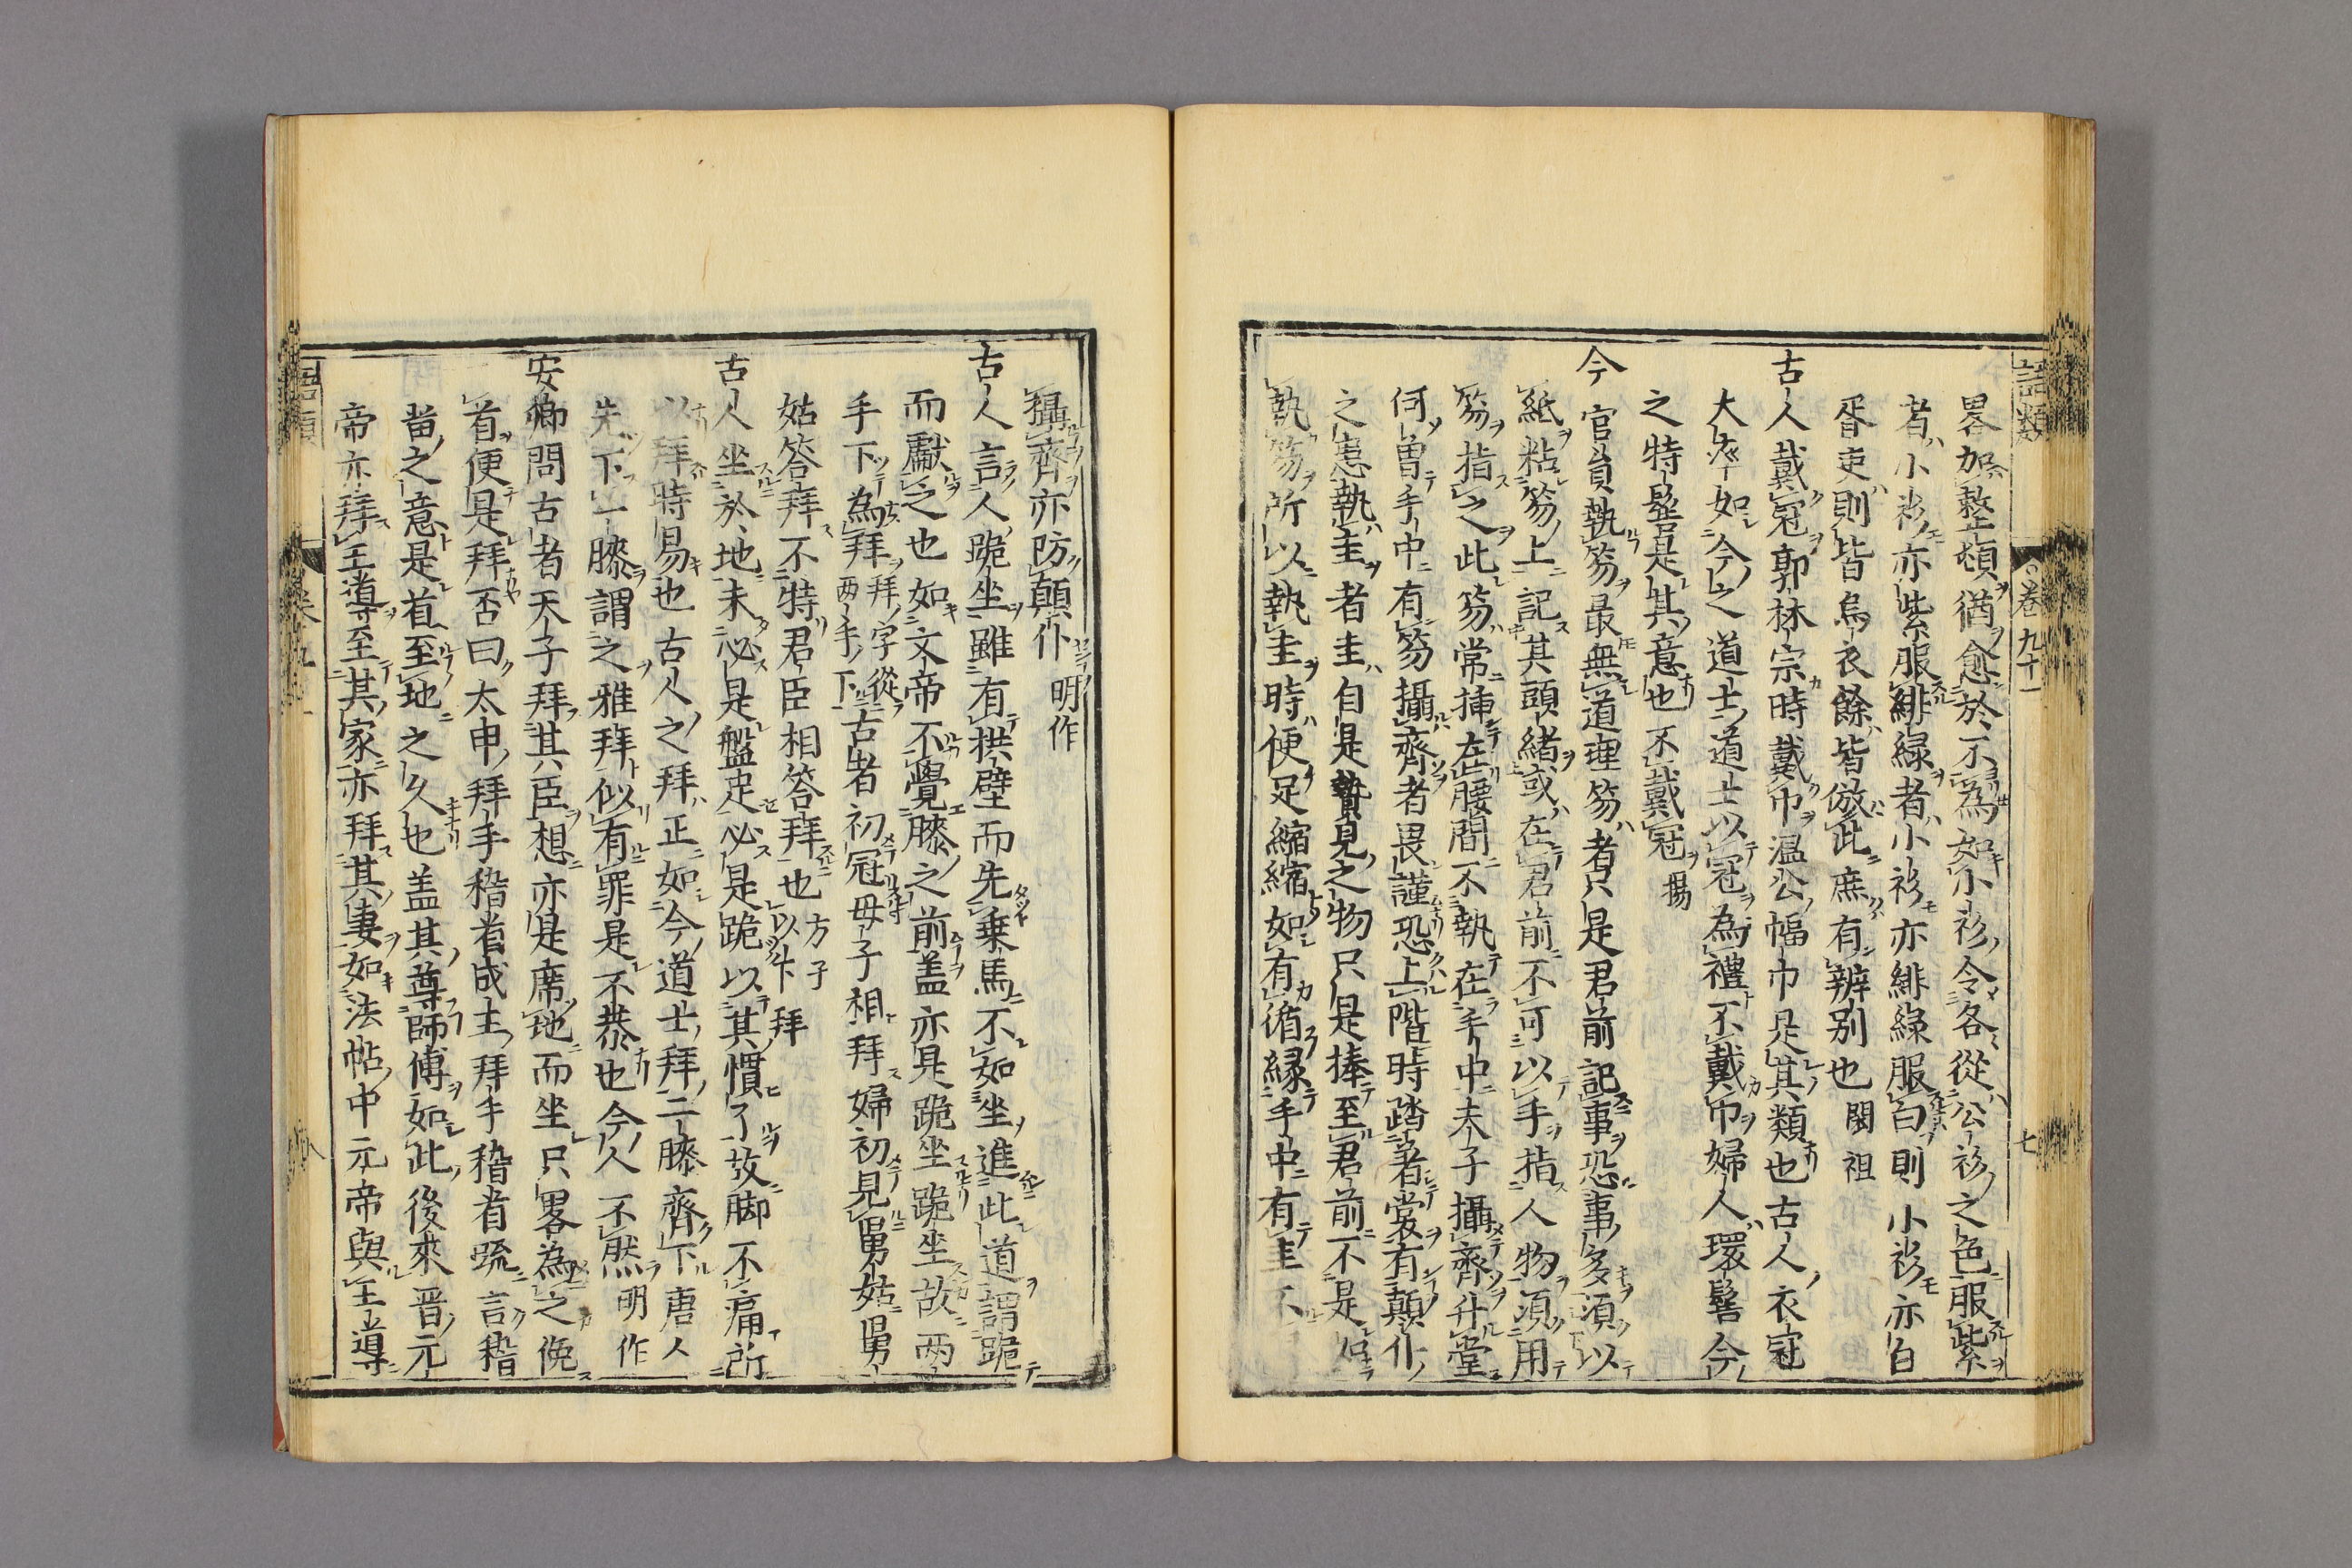 語類
卷九十一
七
畧加整頓猶愈於不爲如小衫令各從公衫之色服紫
者小衫亦紫服緋緑者小衫亦緋緑服白則小衫亦白
胥吏則皆烏衣餘皆倣此庶有辨别也閎祖
古人戴冠郭林宗時戴巾温公幅巾是其類也古人衣冠
大率如今之道士道士以冠為禮不戴巾婦人環髻今
之特髻是其意也不戴冠揚
今官員執笏最無道理笏者只是君前記事恐事多須以
紙粘笏上記其頭緒或在君前不可以手指人物須用
笏指之此笏常挿在腰間不執在手中夫子攝齊升堂
何曽手中有笏攝齊者畏謹恐上階時踏著裳有顛仆
之患執圭者圭自是贄見之物只是捧至君前不是如
執笏所以執圭時便足縮縮如有循縁手中有圭不
攝齊亦防顛仆明作
古人言人跪坐雖有拱璧而先乗馬不如坐進此道謂跪
而獻之也如文帝不覺膝之前盖亦是跪坐跪坐故两
手下為拜拜字從两手下古者初冠母子相拜婦初見舅姑舅
姑答拜不特君臣相答拜也方子以下拜
古人坐於地未必是盤足必是跪以其慣了故脚不痛所
以拜時易也古人之拜正如今道士拜二膝齊下唐人
先下一膝謂之雅拜似有罪是不恭也今人不然明作
安卿問古者天子拜其臣想亦是席地而坐只畧為之俛
首便是拜否曰太甲拜手稽首成王拜手稽首疏言稽
畱之意是首至地之久也盖其尊師傅如此後來晋元
帝亦拜王導至其家亦拜其妻如法帖中元帝與王導
語類